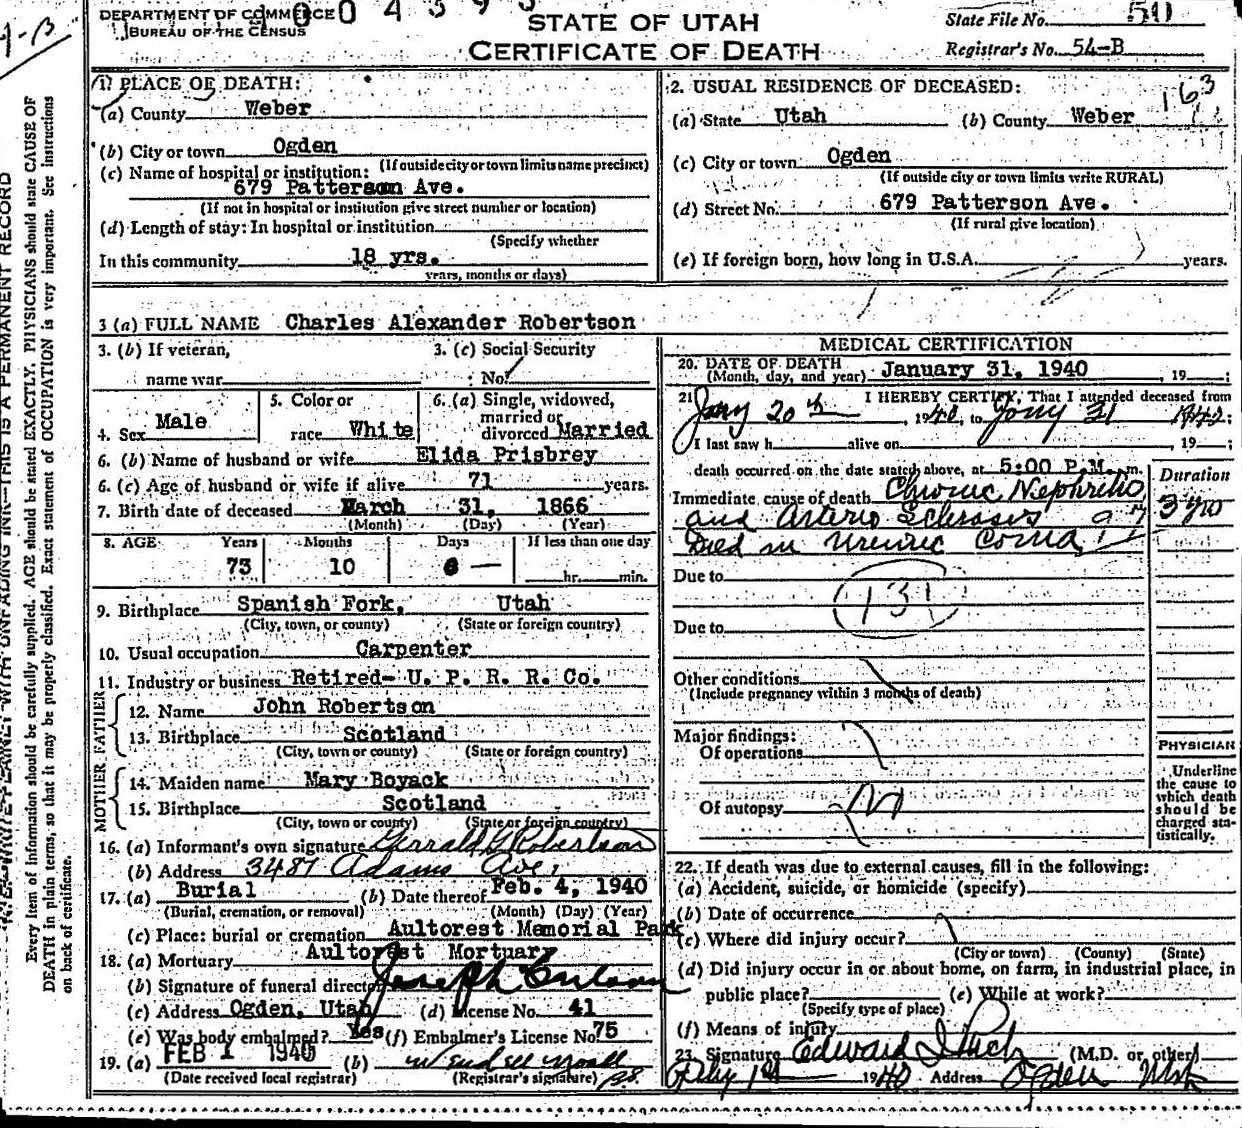 DEPARTMENT OF COMMERCE
BUREAU OF THE CENSUS
0 4 3 9 5
STATE OF UTAH
CERTIFICATE OF DEATH
State File No. 50
Registrar's No. 54-B
1. PLACE OF DEATH:
(a) County Weber
(b) City or town Ogden
(If outside city or town limits name precinct)
(c) Name of hospital or institution:
679 Patterson Ave.
(If not in hospital or institution give street number or location)
(d) Length of stay: In hospital or institution
(Specify whether
In this community 18 yrs.
years, months or days)
2. USUAL RESIDENCE OF DECEASED:
163
(a) State Utah (b) County Weber
(c) City or town Ogden
(If outside city or town limits write RURAL)
(d) Street No. 679 Patterson Ave.
(If rural give location)
(e) If foreign born, how long in U.S.A. years.
3 (a) FULL NAME Charles Alexander Robertson
3. (b) If veteran, name war
3. (c) Social Security No.
4. Sex Male
5. Color or race White
6. (a) Single, widowed, married or divorced Married
6. (b) Name of husband or wife Elida Prisbrey
6. (c) Age of husband or wife if alive 71 years.
7. Birth date of deceased March 31, 1866
(Month) (Day) (Year)
8. AGE Years Months Days If less than one day
73 10 hr. min.
9. Birthplace Spanish Fork, Utah
(City, town, or county) (State or foreign country)
10. Usual occupation Carpenter
11. Industry or business Retired- U. P. R. R. Co.
FATHER
12. Name John Robertson
13. Birthplace Scotland
(City, town or county) (State or foreign country)
MOTHER
14. Maiden name Mary Boyack
15. Birthplace Scotland
(City, town or county) (State or foreign country)
16. (a) Informant's own signature Gerrald G Robertson
(b) Address 3487 Adams Ave,
17. (a) Burial (b) Date thereof Feb. 4, 1940
(Burial, cremation, or removal) (Month) (Day) (Year)
(c) Place: burial or cremation Aultorest Memorial Park
18. (a) Mortuary Aultorest Mortuary
(b) Signature of funeral director Joseph
(c) Address Ogden, Utah (d) License No. 41
(e) Was body embalmed? Yes (f) Embalmer's License No. 75
19. (a) FEB 1 1940 (b)
(Date received local registrar) (Registrar's signature)
MEDICAL CERTIFICATION
20. DATE OF DEATH
(Month, day, and year) January 31, 1940, 19 ;
21 I HEREBY CERTIFY, That I attended deceased from
Jany 20th, 1940, to Jany 31 1940;
I last saw h alive on , 19 ;
death occurred on the date stated above, at 5:00 P.M. m.
Duration
Immediate cause of death Chronic Nephritis 3 yrs
and Arterio Sclerosis 97
Died in Uremic Coma
Due to
131
Due to
Other conditions
(Include pregnancy within 3 months of death)
Major findings:
Of operations
Of autopsy
PHYSICIAN
Underline
the cause to
which death
should be
charged sta-
tistically.
22. If death was due to external causes, fill in the following:
(a) Accident, suicide, or homicide (specify)
(b) Date of occurrence
(c) Where did injury occur?
(City or town) (County) (State)
(d) Did injury occur in or about home, on farm, in industrial place, in
public place? (e) While at work?
(Specify type of place)
(f) Means of injury
23. Signature Edward I Rich (M.D. or other)
Feby 1st 1940 Address Ogden Utah
WRITE PLAINLY WITH UNFADING INK—THIS IS A PERMANENT RECORD
Every item of information should be carefully supplied. AGE should be stated EXACTLY. PHYSICIANS should state CAUSE OF
DEATH in plain terms, so that it may be properly classified. Exact statement of OCCUPATION is very important. See instructions
on back of certificate.